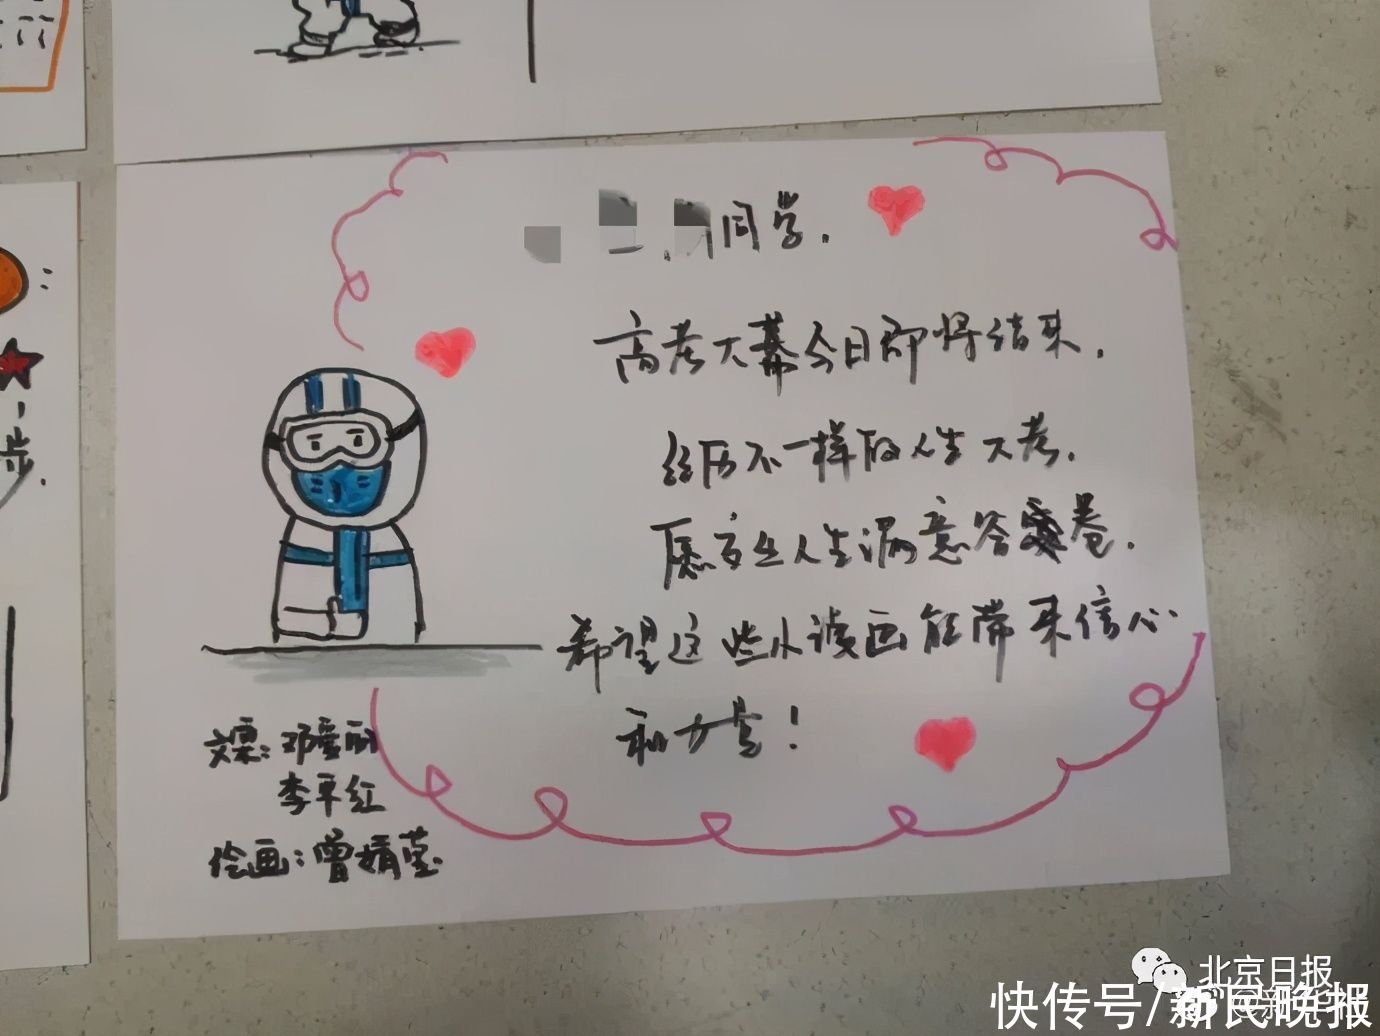 步.
同学，
高考大幕今日即将结束，
经历不一样的人生大考，
愿交上人生满意答卷，
希望这些小漫画能带来信心
和力量！
文案：邓爱丽
李平红
绘画：曾婧莹
北京日报
快传号/新民晚报